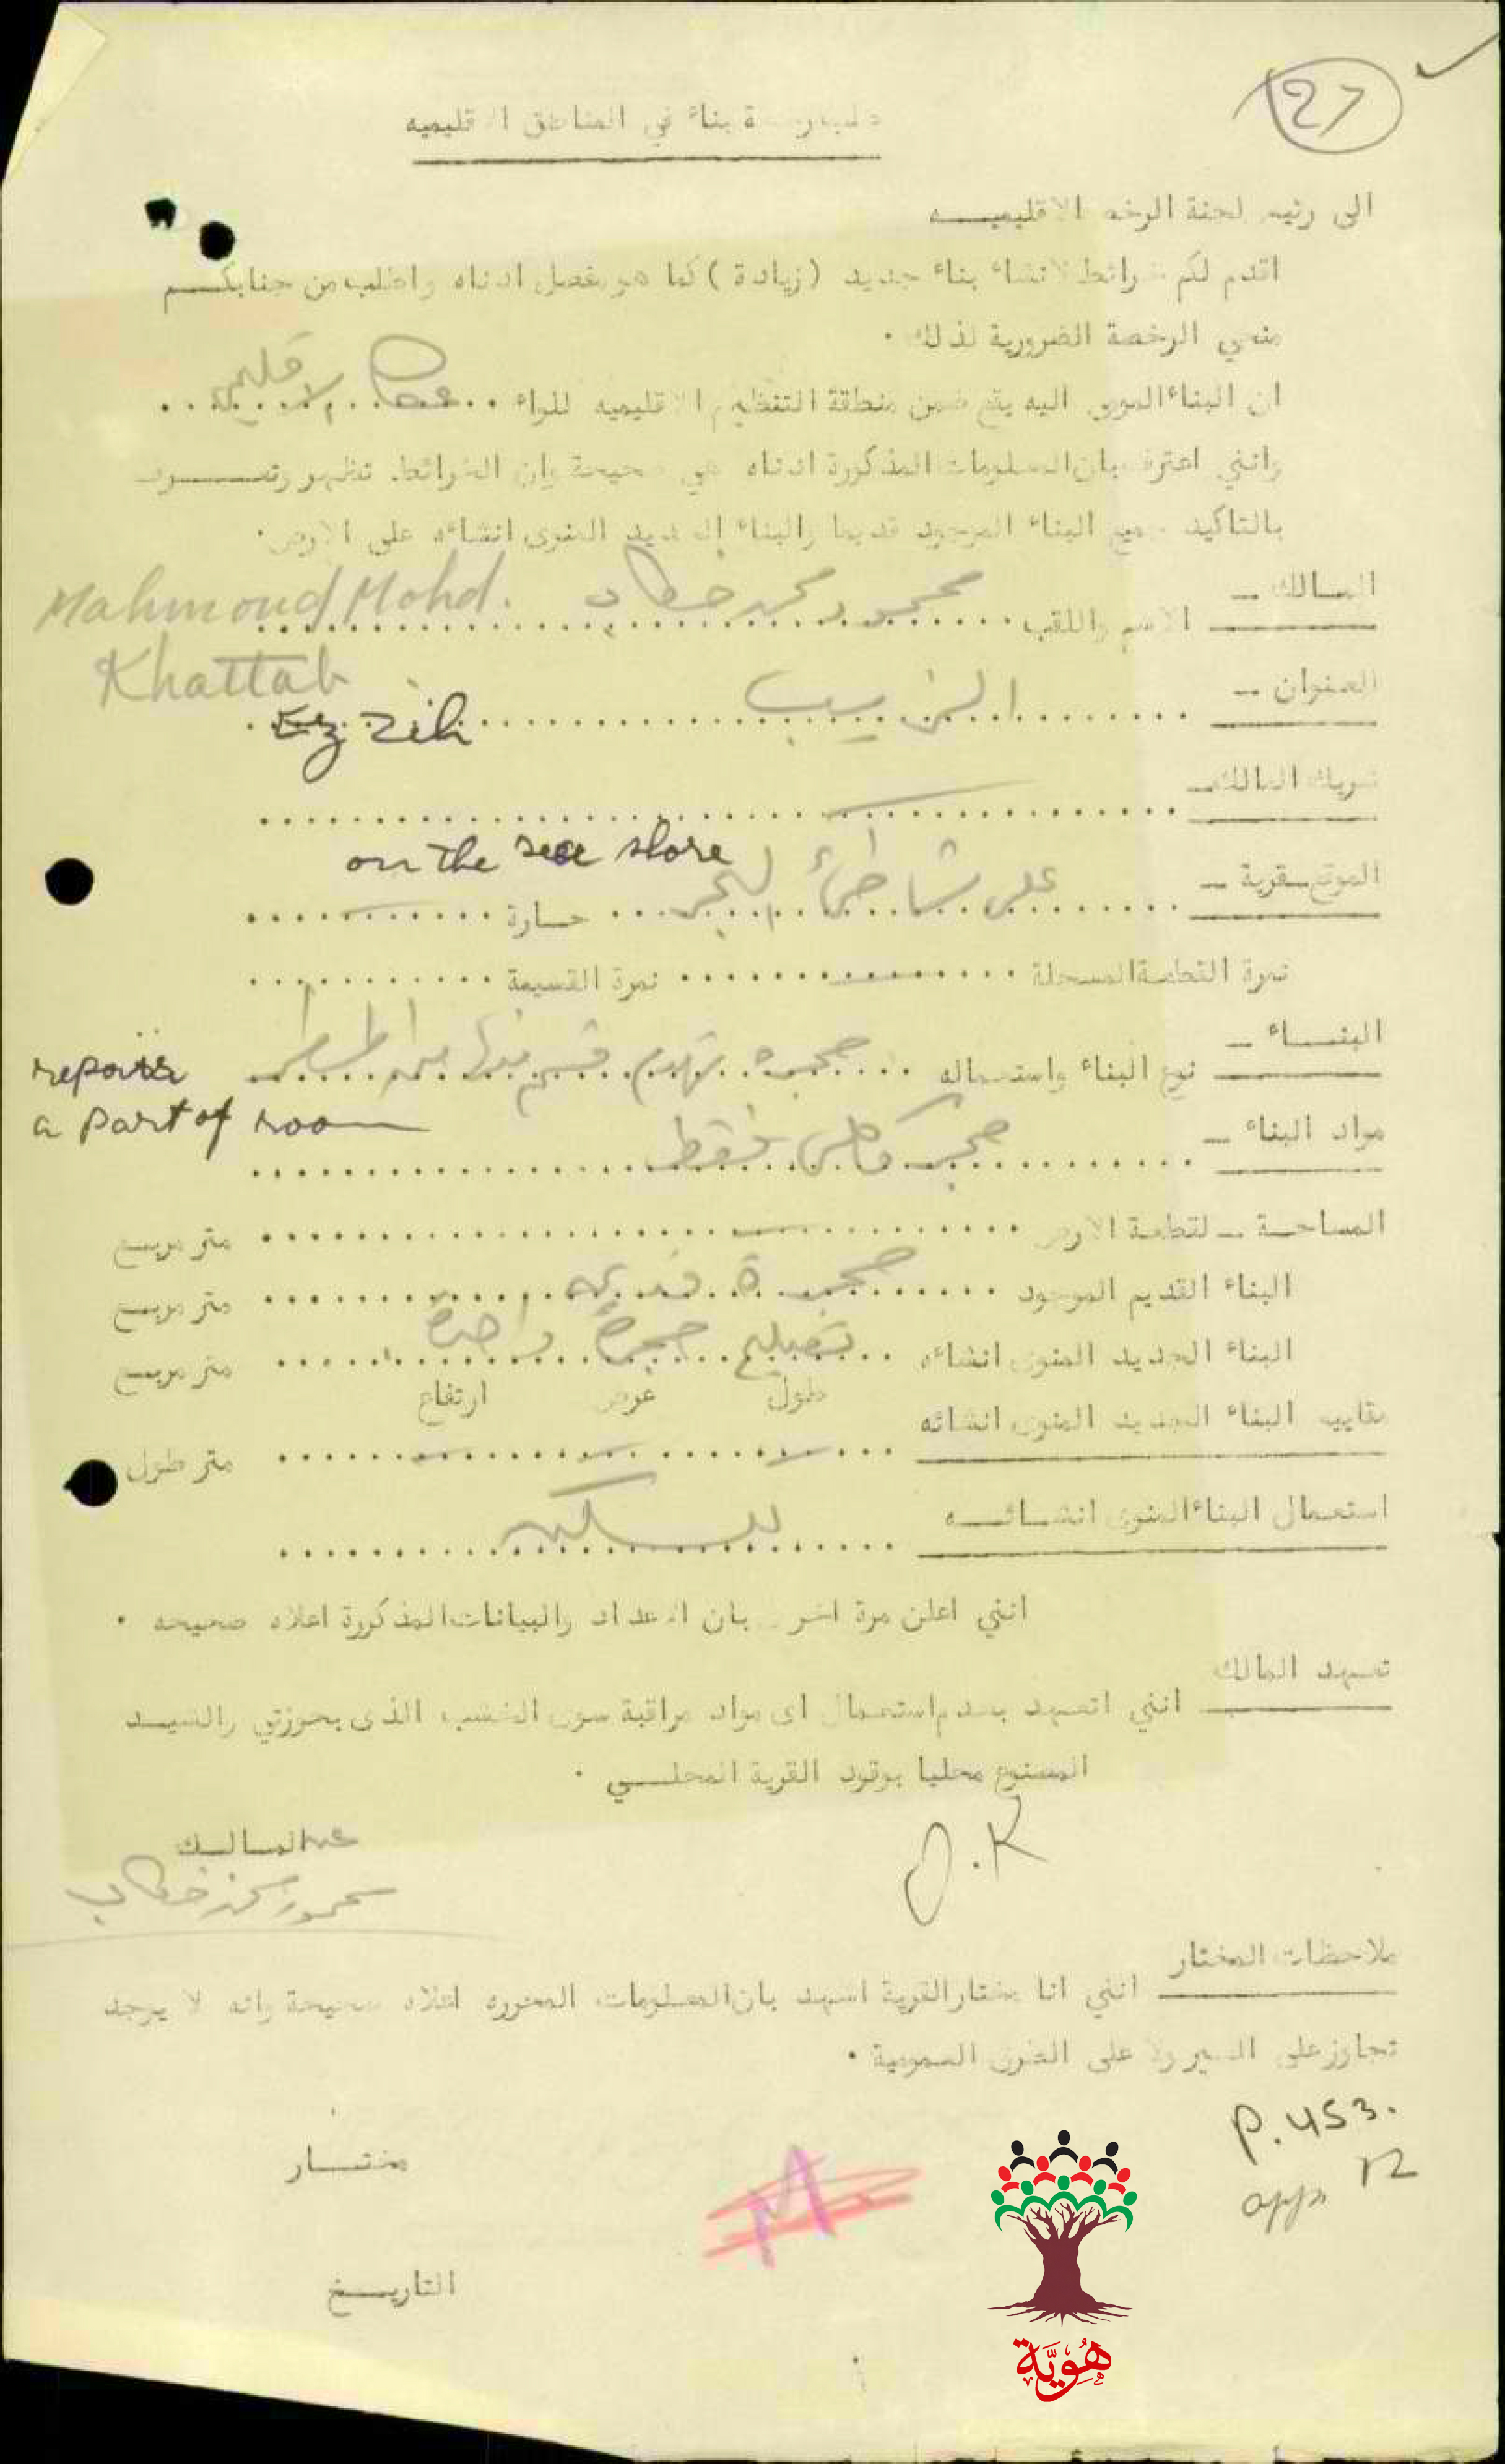 27
طلب رخصة بناء في المناطق الاقليميه
الى رئيس لجنة الرخص الاقليميـــه
اقدم لكم خرائط لانشاء بناء جديد (زيادة) كما هو مفصل ادناه واطلب من جنابكـــم
منحي الرخصة الضرورية لذلك .
ان البناء اليه يقع ضمن منطقة التنظيم الاقليميه للواء عكا
وانني اعترف بان المعلومات المذكورة ادناه هي صحيحة وان الخرائط تظهر
بالتاكيد جميع البناء الموجود قديما والبناء الجديد المنوى انشاءه على الارض .
المالك ــ
الاسم واللقب محمود محمد خطاب Mahmoud Mohd.
Khattab
العنوان ــ الزيب Ez Zib
شريك المالك ــ
on the sea shore
الموقع ــ قرية ــ على شاطئ البحر حارة
نمرة القطعة المسجلة نمرة القسيمة
البنـــاء ــ
نوع البناء واستعماله حجره تهدم قسم منها repairs
a part of room
مواد البناء ــ حجر فقط
المساحة ــ لقطعة الارض متر مربع
البناء القديم الموجود حجرة متر مربع
البناء الجديد المنوى انشاءه تصليح حجرة واحدة متر مربع
طول عرض ارتفاع
مقاييس البناء الجديد المنوى انشائه متر طول
استعمال البناء المنوى انشـائـــه للسكن
انني اعلن مرة اخرى بان الاعداد والبيانات المذكورة اعلاه صحيحه .
تعهد المالك
انني اتعهد بعدم استعمال اى مواد مراقبة سوى الخشب الذى بحوزتي والشيـــد
المصنوع محليا بوقود القرية المحلـــي .
O.K
المـالـــك
محمود محمد خطاب
ملاحظات المختار
انني انا مختار القرية اشهد بان المعلومات المحرره اعلاه صحيحة وانه لا يوجد
تجاوز على السير ولا على الطرق العمومية .
P. 453.
12
مختـــار
التاريـــخ
هُوِيَّة